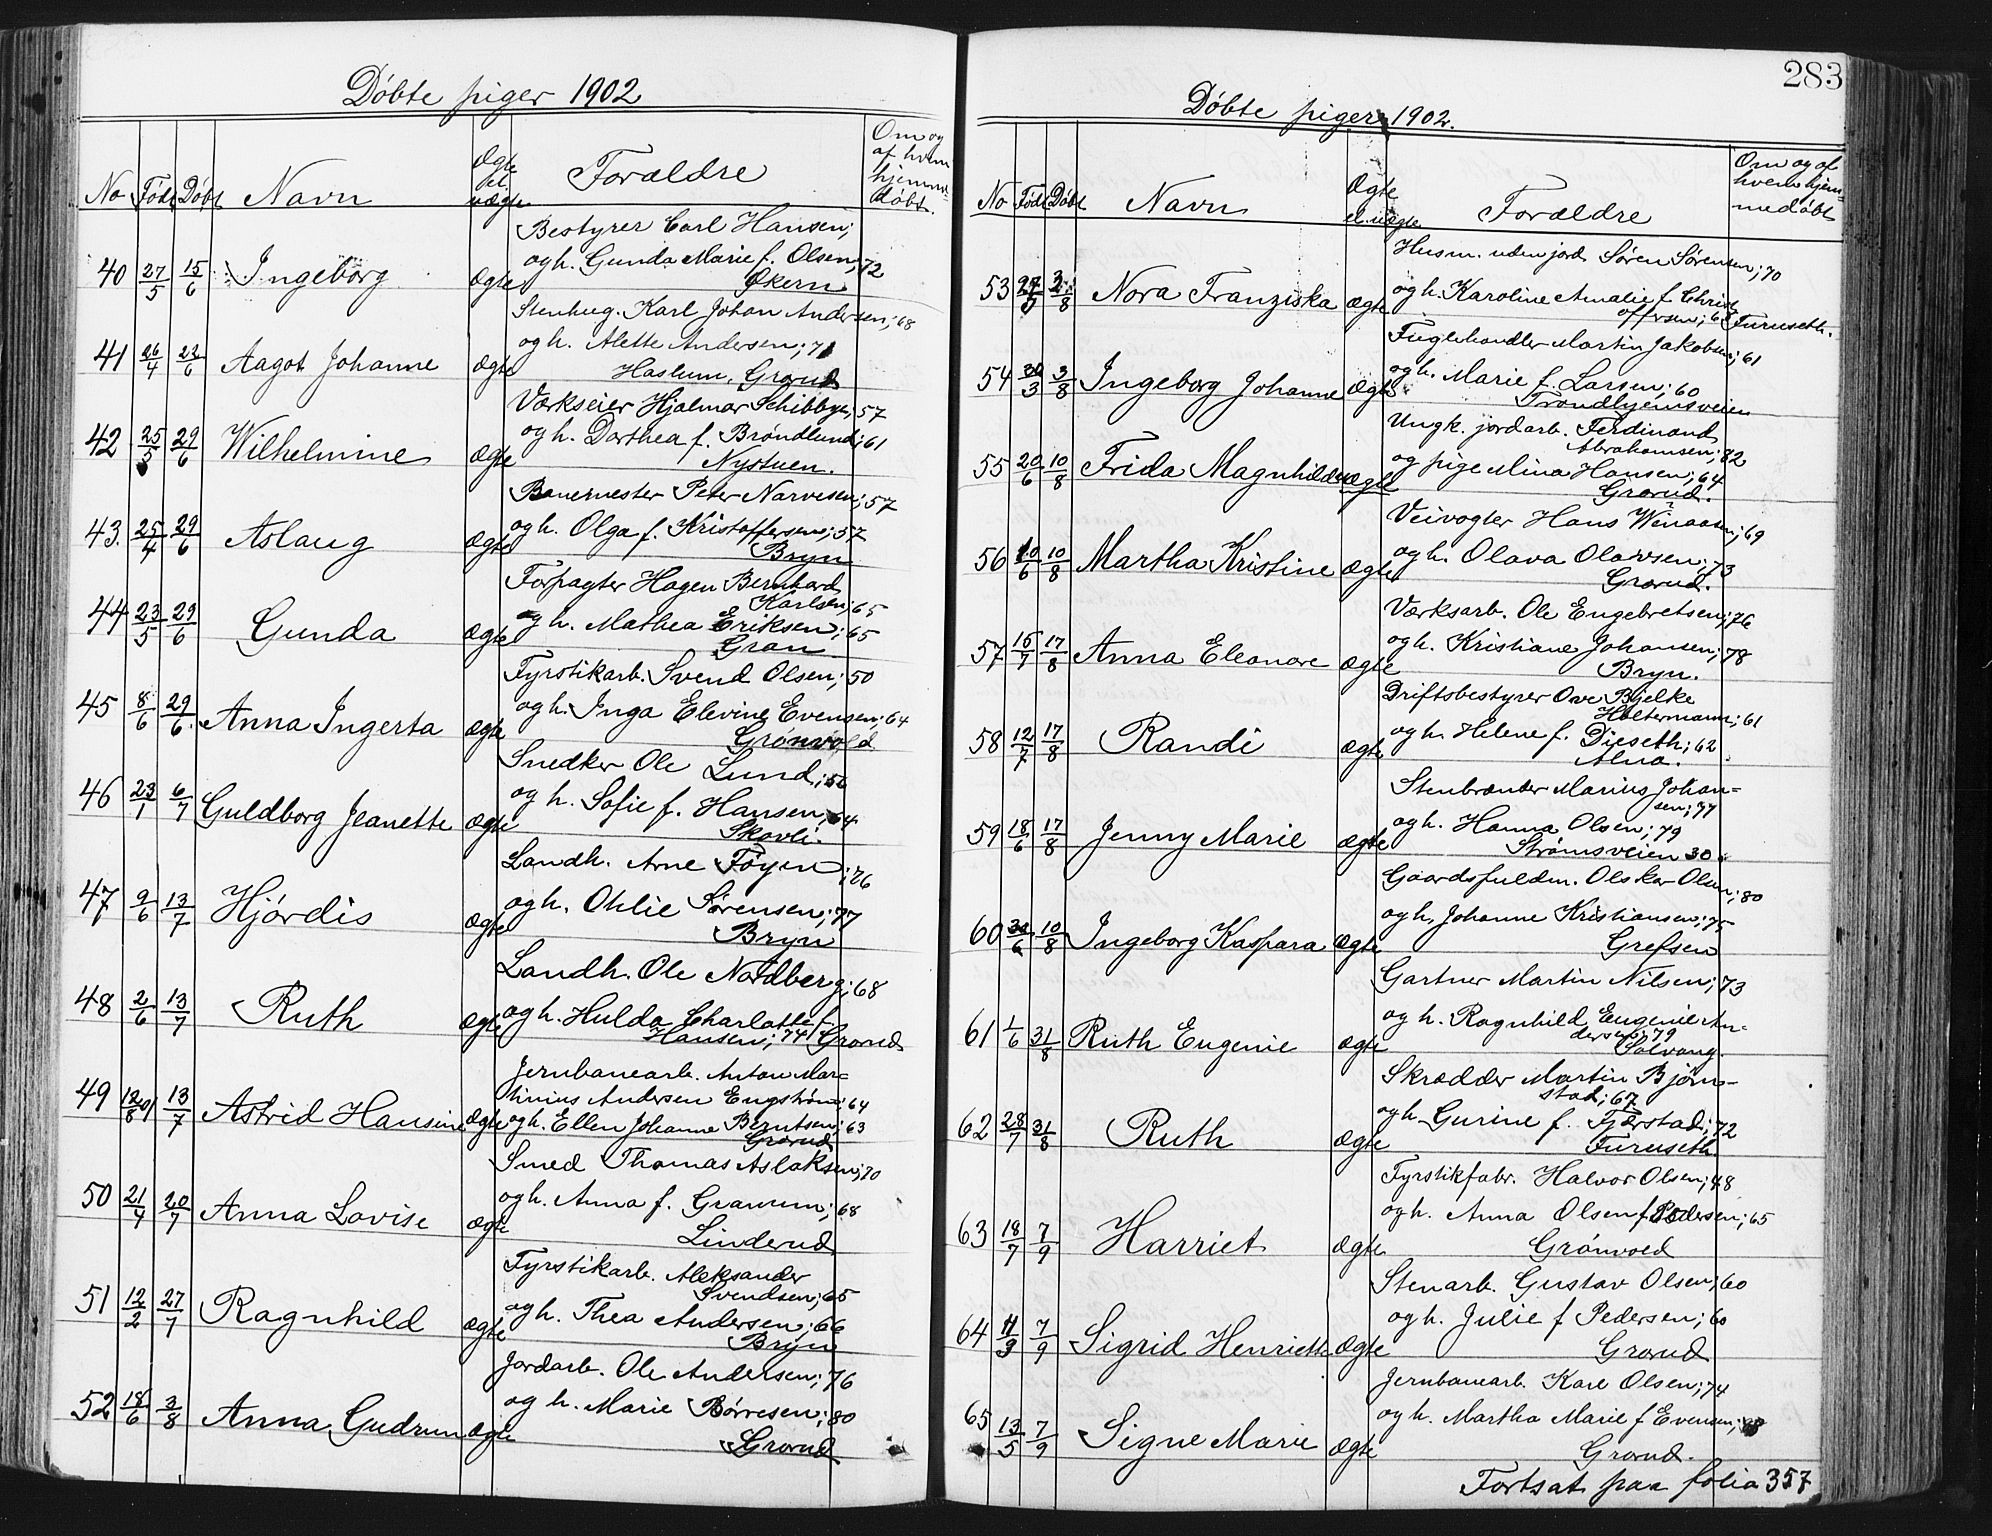 Døbte piger 1902
No Født Døbt Navn Ægte el. uægte Forældre Om og af hvem hjemme-døbt.
40 27/5 15/6 Ingeborg Ægte
Bestyrer Carl Hansen;
og h. Gunda Marie f. Olsen; 72
Økern
41 26/4 22/6 Aagot Johanne Ægte
Stenhug. Karl Johan Andersen; 68
og h. Alette Andersen; 71
Haslum, Grorud
42 25/5 29/6 Wilhelmine Ægte
Værkseier Hjalmar Schibbye; 57
og h. Dorthea f. Brøndlund; 61
Nystuen.
43. 25/4 29/6 Aslaug Ægte
Banemester Peter Narvesen; 57
og h. Olga f. Kristoffersen; 57
Bryn
44 23/5 29/6 Gunda Ægte
Forpagter Hagen Bernhard
Karlsen; 65
og h. Mathea Eriksen; 65
Gran
45 8/6 29/6. Anna Ingerta Ægte
Fyrstikarb. Svend Olsen; 50
og h. Inga Elevine Evensen; 64
Grønvold
46 23/1 6/7 Guldborg Jeanette Ægte
Snedker Ole Lund; 56
og h. Sofie f. Hansen, 64
Skovli.
47 9/6 13/7 Hjørdis Ægte
Landh. Arne Føyen; 76
og h. Ohlie Sørensen; 77
Bryn
48 2/6 13/7 Ruth Ægte
Landh. Ole Nordberg; 68
og h. Hulda Charlotte f.
Hansen; 74 Grorud
49 12/8 01 13/7 Astrid Hansine Ægte
Jernbanearb. Anton Mar=
tinius Andersen Engstrøm; 64
og h. Ellen Johanne Berntsen; 63
Grorud
50 21/4 20/7 Anna Lovise Ægte
Smed Thomas Aslaksen; 70
og h. Anna f. Gravum; 68
Linderud
51 12/2 27/7 Ragnhild Ægte
Fyrstikarb. Aleksander
Svendsen; 65
og h. Thea Andersen; 66
Bryn
52 18/6 3/8 Anna Gudrun Ægte
Jordarb. Ole Andersen; 76
og h. Marie Børresen; 80
Grorud
283
Døbte piger 1902.
No Født Døbt Navn Ægte el. uægte Forældre Om og af hvem hjem=medøbt
53 27/5 3/8 Nora Franziska Ægte
Husm. uden jord Søren Sørensen; 70
og h. Karoline Amalie f. Christ
offersen; 67 Furuseth.
54 30/3 3/8 Ingeborg Johanne Ægte
Fuglehandler Martin Jakobsen; 61
og h. Marie f. Larsen; 60
Trondhjemsveien
55 20/6 10/8 Frida Magnhilde uægte
Ungk. jordarb. Ferdinand
Abrahamsen; 72
og pige Mina Hansen; 64
Grorud.
56 10/6 10/8 Martha Kristine Ægte
Veivogter Hans Winaasen; 69
og h. Olava Olavsen; 73
Grorud.
57 16/7 17/8 Anna Eleonore Ægte
Værksarb. Ole Engebretsen; 76
og h. Kristiane Johansen; 78
Bryn.
58 12/7 17/8 Randi Ægte
Driftsbestyrer Ove Bjelke
Holtermann; 61
og h. Helene f. Dieseth; 62
Alna.
59 18/6 17/8 Jenny Marie Ægte
Stenbrænder Marius Johan=
sen; 77
og h. Hanna Olsen; 79
Strømsveien 30
60 30/6 10/8 Ingeborg Kaspara Ægte
Gaardsfuldm. Olskar Olsen; 80
og h. Johanne Kristiansen; 75
Grefsen
61 1/6 31/8 Ruth Eugenie Ægte
Gartner Martin Nilsen; 73
og h. Ragnhild Eugenie An=
dersen; 79
Solvang.
62 28/7 31/8 Ruth Ægte
Skrædder Martin Bjørn=
stad; 67
og h. Gurine f. Fjærstad; 72
Furuseth
63 18/7 7/9 Harriet Ægte
Fyrstikfabr. Halvor Olsen; 48
og h. Anna Olsen f Pedersen; 65
Grønvold
64 11/3 7/9 Sigrid Henriette Ægte
Stenarb. Gustav Olsen; 60
og h. Julie f Pedersen; 60
Grorud
65 13/5 7/9 Signe Marie Ægte
Jernbanearb. Karl Olsen; 74
og h. Martha Marie f Evensen;
Grorud.
Fortsat paa folio 357